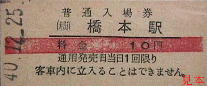 普通入場券
橋本駅
料金 10円
通用発売日当日1回限り
客車内に立入ることはできません。
40.12.25